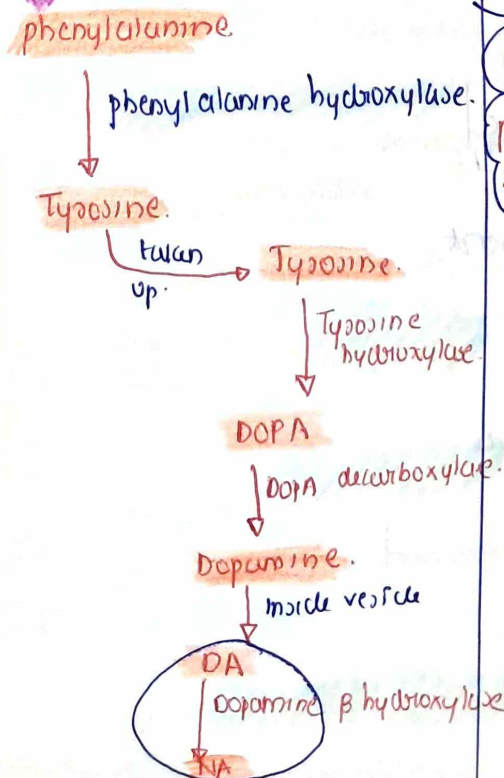 phenylalanine
phenyl alanine hydroxylase.
Tyrosine.
taken
up.
Tyrosine.
Tyrosine
hydroxylase.
DOPA
DOPA decarboxylase.
Dopamine.
inside vesicle
DA
Dopamine β hydroxylase
NA